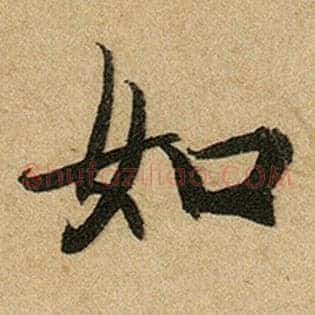 如
shufazidao.com